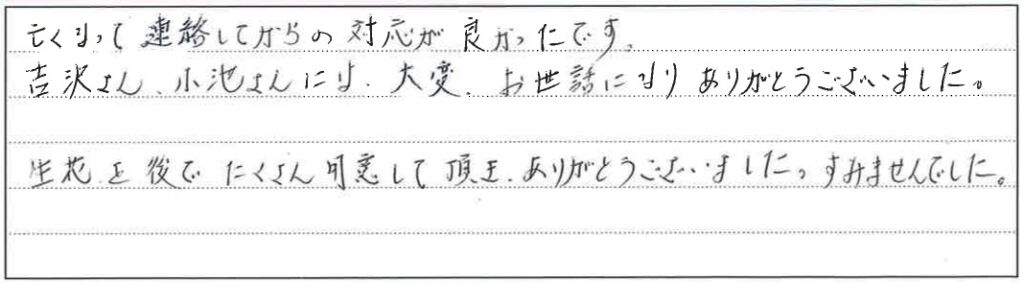 亡くなって連絡してからの対応が良かったです。
吉沢さん、小池さんには、大変、お世話になりありがとうございました。
生花を後でたくさん用意して頂き、ありがとうございました。すみませんでした。